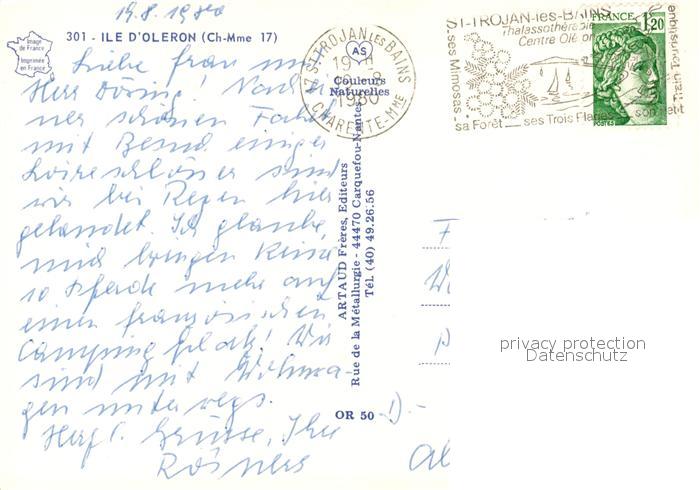 19.8.1980
301 - ILE D'OLERON (Ch-Mme 17)
Image
de France
Imprimée
en France
Liebe Frau und
Herr Döring! Nach
ner schönen Fahrt
mit Besuch einiger
Loireschlösser sind
wir bei Regen hier
gelandet. Ich glaube,
mich bringen keine
10 Pferde mehr auf
einen französischen
Campingplatz! Wir
sind mit Wohnwa-
gen unterwegs.
Herzl. Grüsse, Ihre
Rösners
AS
Couleurs
Naturelles
ARTAUD Frères, Editeurs
Rue de la Métallurgie - 44470 Carquefou-Nantes
Tél. (40) 49.26.56
OR 50
17 ST-TROJAN LES BAINS
19
1980
CHARENTE-Mme
ST-TROJAN-les-BAINS
Thalassothérapie
Centre Oléron
ses Mimosas
sa Forêt ses Trois Plages son petit
FRANCE
1,20
D-
privacy protection
Datenschutz